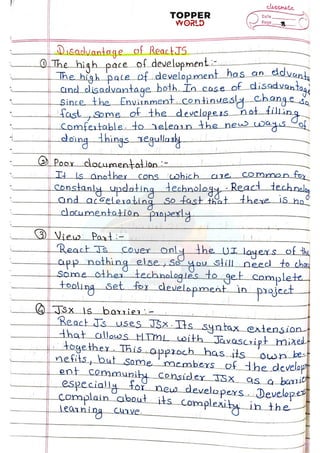 classmate
TOPPER
WORLD
Date
Page
Disadvantage of ReactJS
① The high pace of development:-
The high pace of development has an advanta
and disadvantage both. In case of disadvantage
since the Enviinment continuesly change so
fast, some of the developers not filling
comfertable to relearn the new ways of
doing things regullarly.
② Poor documentation:-
It Is another cons which are common for
constanly updating technology. React technolog
and accelerating so fast that there is no
documentation properly.
③ View Part:-
React Js cover only the UI layers of the
app nothing else, so you still need to choo
some other technologies to get complete
tooling set for development in project
④ JSX is barrier:-
React Js uses JSX. Its syntax extension
that allows HTML with Javascript mixed
together. This approch has its own be-
nefits, but some members of the develop
ent community consider JSX as a barrie
especially for new developers. Developer
complain about its complexity in the
learning curve